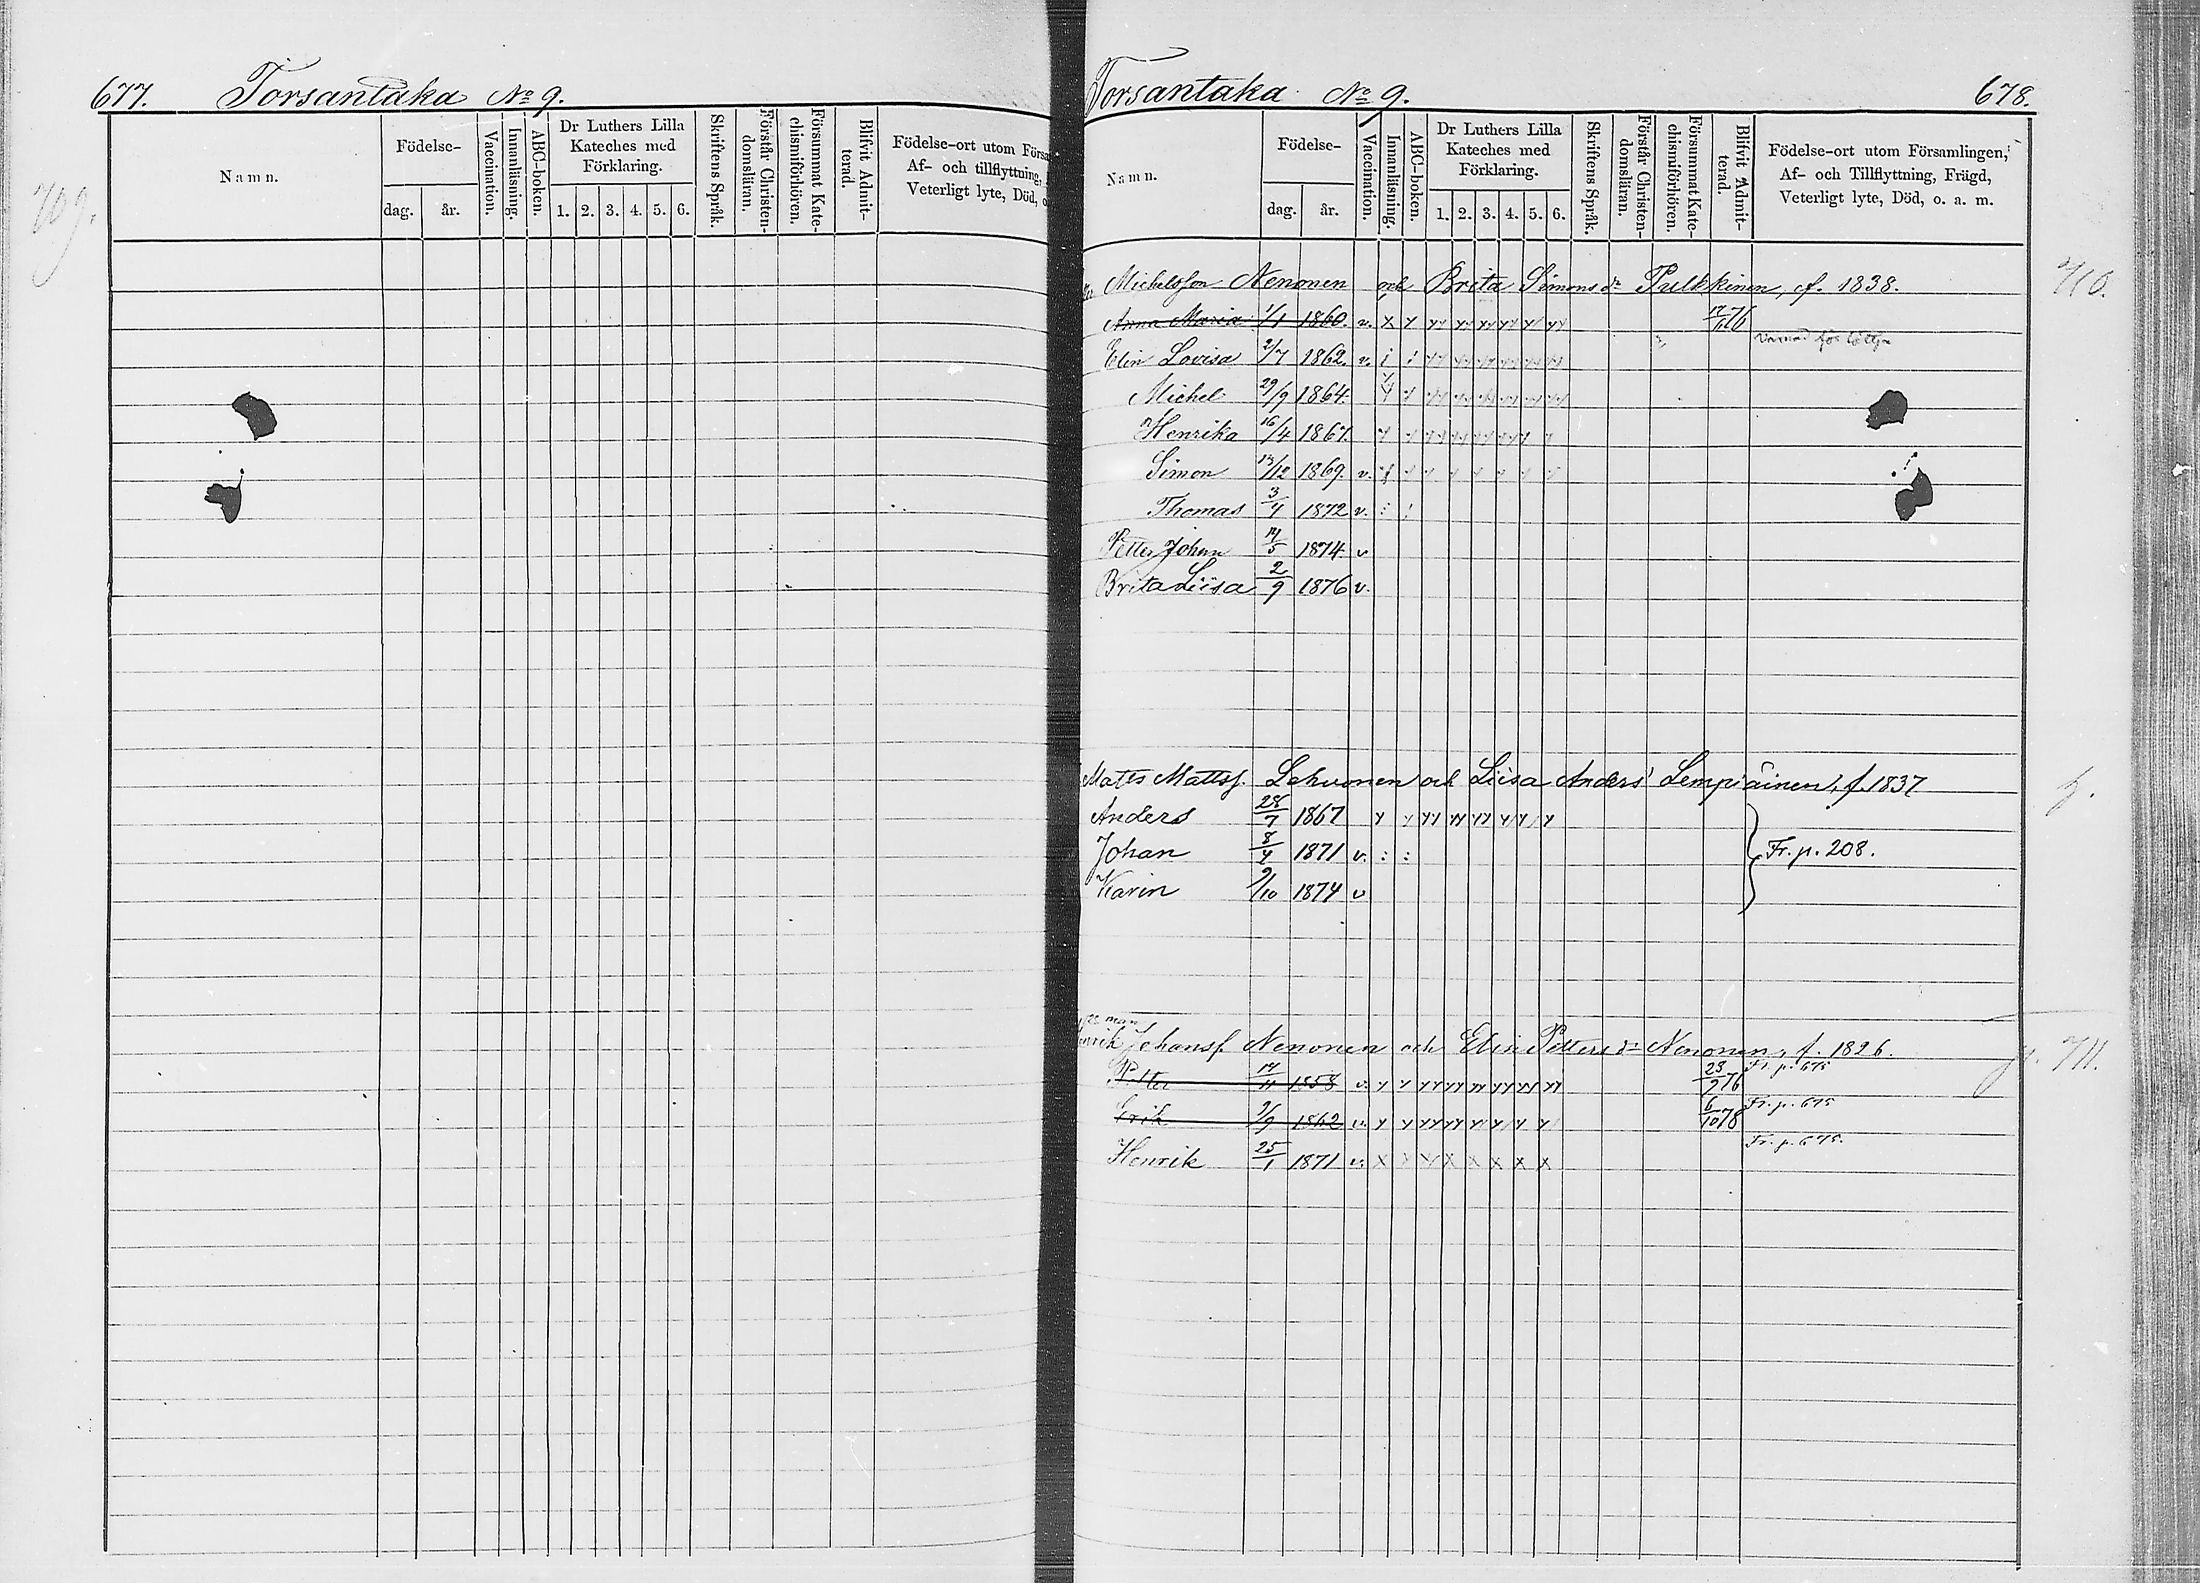 677. Torsantaka No 9.
Namn.
Födelse-
dag. år.
Vaccination.
Innanläsning.
ABC-boken.
Dr Luthers Lilla
Kateches med
Förklaring.
1. 2. 3. 4. 5. 6.
Skriftens Språk.
Förstår Christen-
domsläran.
Försummat Kate-
chismiförhören.
Blifvit Admit-
terad.
Födelse-ort utom Försa
Af- och tillflyttning,
Veterligt lyte, Död, o
709.
Torsantaka No 9. 678.
Namn.
Födelse-
dag. år.
Vaccination.
Innanläsning.
ABC-boken.
Dr Luthers Lilla
Kateches med
Förklaring.
1. 2. 3. 4. 5. 6.
Skriftens Språk.
Förstår Christen-
domsläran.
Försummat Kate-
chismiförhören.
Blifvit Admit-
terad.
Födelse-ort utom Församlingen,
Af- och Tillflyttning, Frägd,
Veterligt lyte, Död, o. a. m.
Michelsson Nenonen och Brita Simons dr Pulkkinen, f. 1838. 710.
Anna Maria 1/1 1860. v. x
Elin Lovisa 2/7 1862. v.
Michel 29/9 1864.
Henrika 16/4 1867.
Simon 13/12 1869. v.
Thomas 3/4 1872 v.
Petter Johan 14/5 1874. v
Brita Liisa 2/9 1876 v.
Matts Mattss. Lehvonen och Liisa Anders Lempiäinen, f. 1837
Anders 28/7 1867
Johan 8/4 1871 v. : : Fr. p. 208.
Karin 9/10 1874 v
Johanss. Nenonen och Elin Petters dr Nenonen, f. 1826. p. 711.
Petter 17/11 1858 v. 23/9 76 Fr. p. 675
Erik 9/9 1862 v. 6/10 78 Fr. p. 675
Henrik 25/1 1871 v. x x x x x x Fr. p. 675.